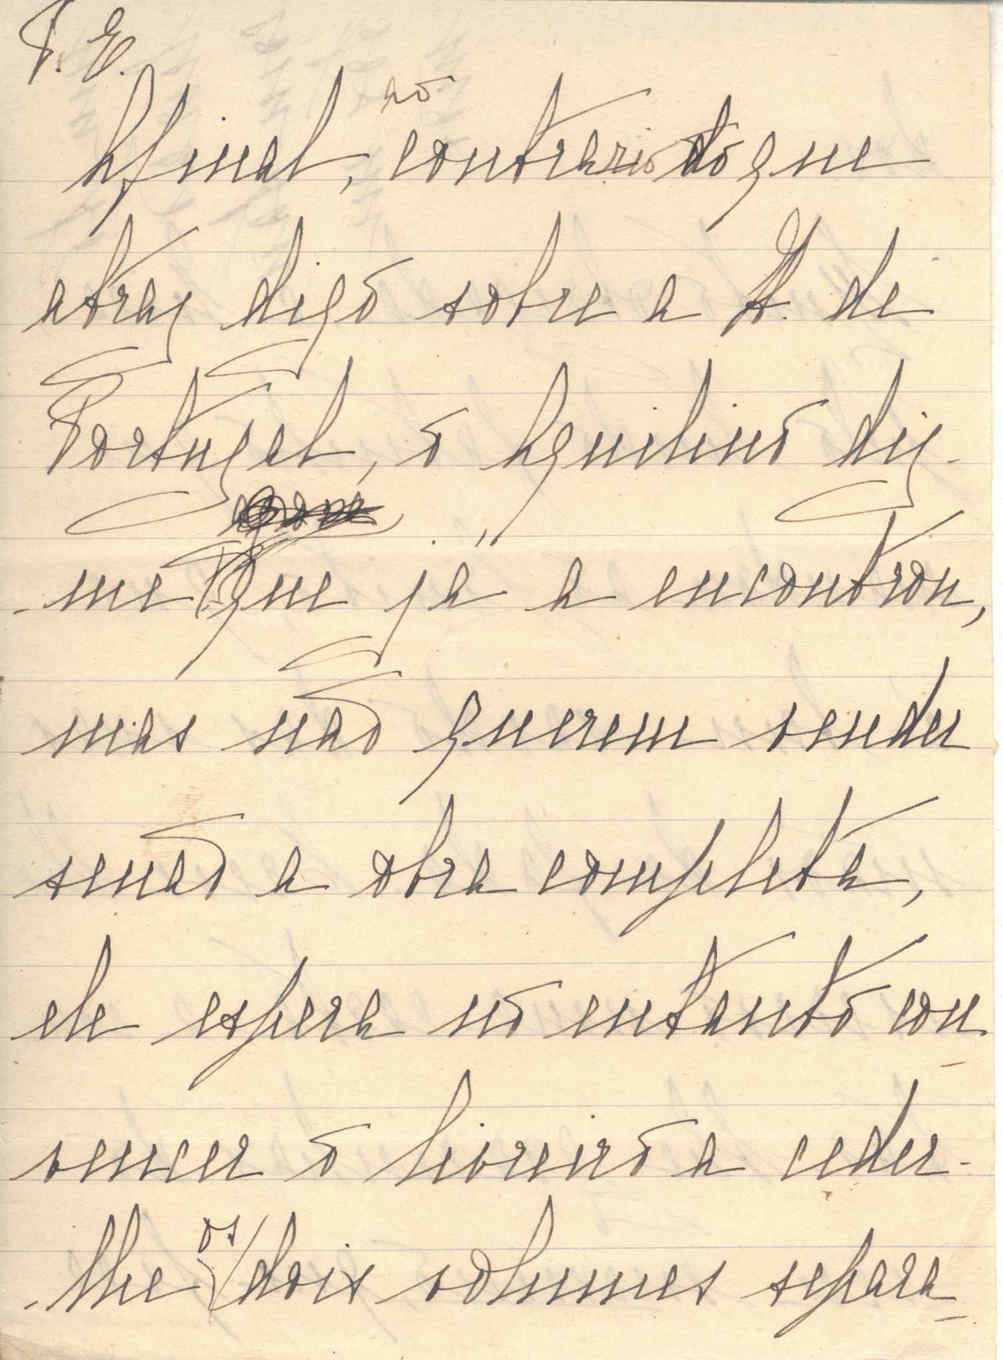 P. E.
Afinal, ao contrario do que
atraz digo sobre a H. de
Portugal, o Aquilino diz-
-me que já a encontrou,
mas não querem vender
senão a obra completa,
ele espera no entanto con
vencer o livreiro a ceder-
-lhe os dois volumes separa